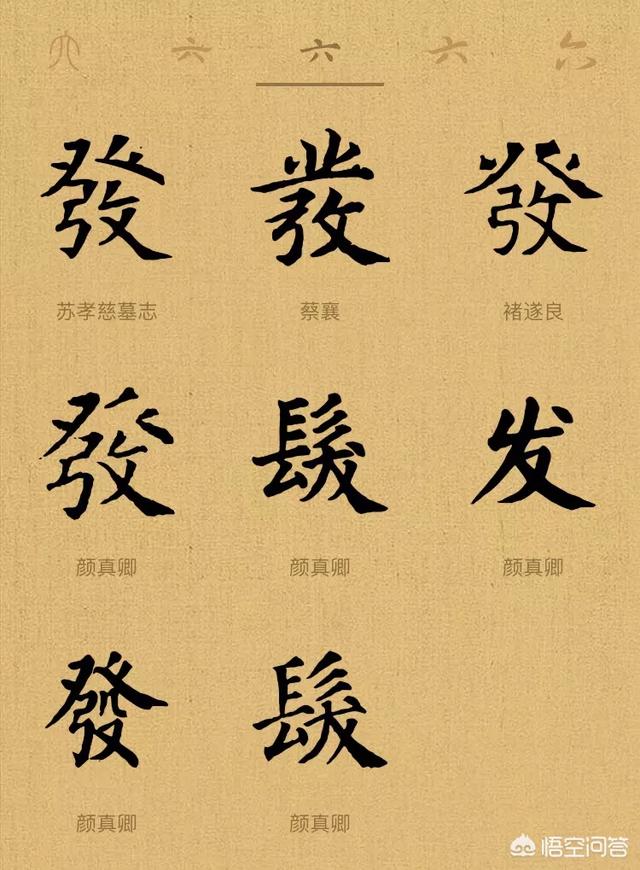 六 六 六 六 六
發 發 發
苏孝慈墓志 蔡襄 褚遂良
發 髮 发
颜真卿 颜真卿 颜真卿
發 髮
颜真卿 颜真卿
悟空问答